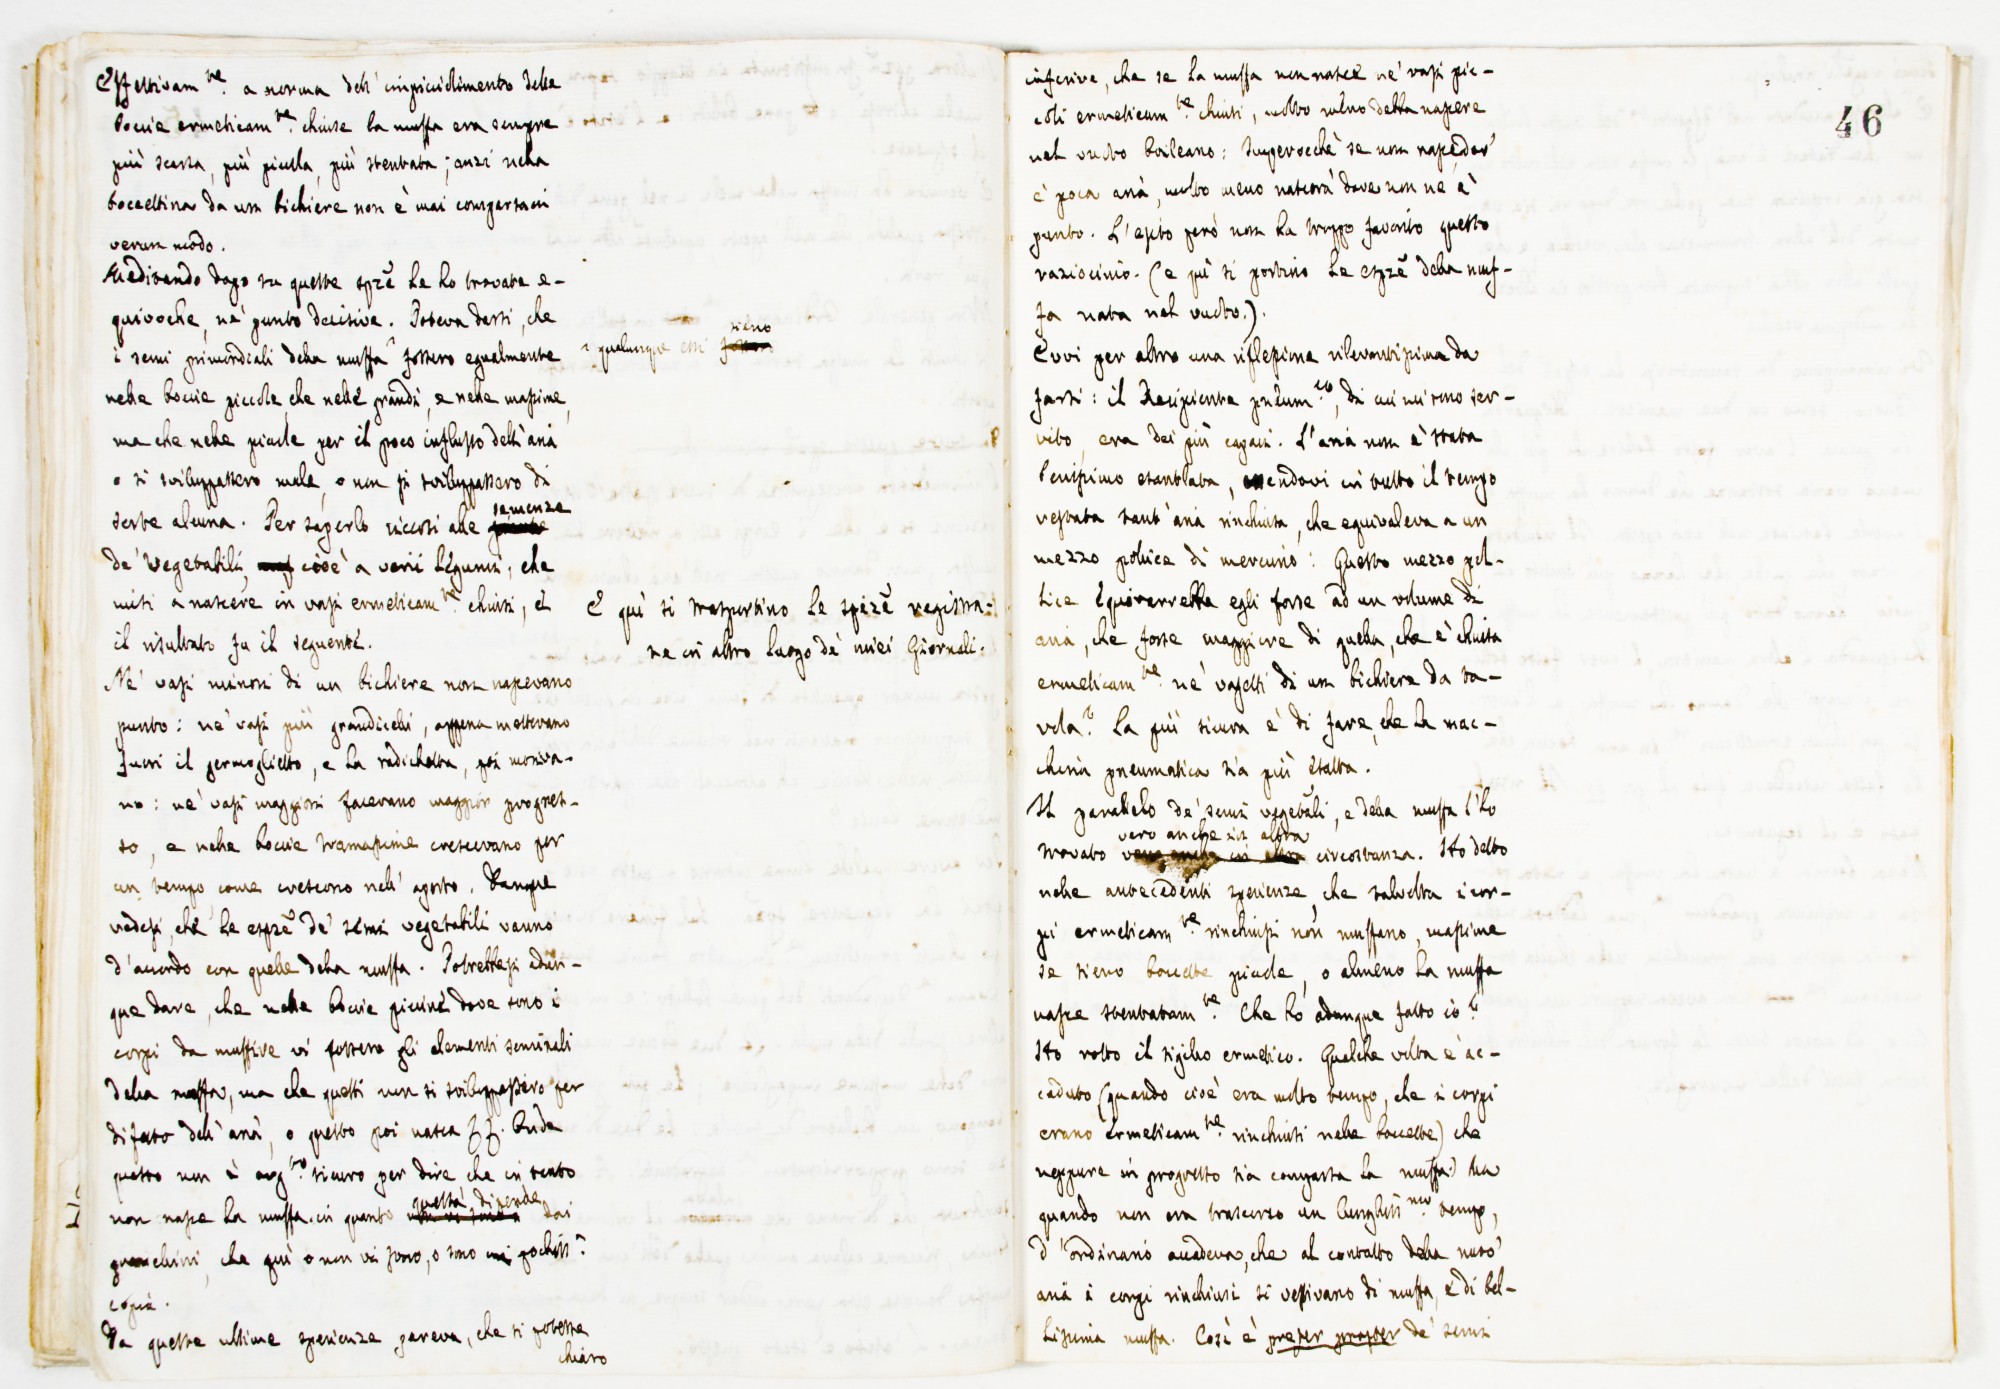 Effettivam.te a norma dell' impiciolimento delle
boccie ermeticam.te chiuse la muffa era sempre
più scarsa, più piccola, più stentata; anzi nella
boccettina da un bichiere non è mai comparsa in
verun modo.
Meditando dopo su queste spze le ho trovate e-
quivoche, nè punto decisive. Poteva darsi, che
i semi primordiali della muffa fossero egualmente
nelle boccie piccole, che nelle grandi, e nelle massime,
ma che nelle picciole per il poco influsso dell' aria
o si sviluppassero male, o non si sviluppassero di
sorte alcuna. Per saperlo riccorsi alle semenze
de' vegetabili, cioè a varii legumi, che
misi a nascere in vasi ermeticam.te chiusi, ed
il risultato fu il seguente.
Ne' vasi minori di un bichiere non nascevano
punto: ne' vasi più grandicelli, appena mettevano
fuori il germoglietto, e la radichetta, poi moriva-
no: ne' vasi maggiori facevano maggior progres-
so, e nelle boccie tramassime crescevano per
un tempo, come crescono nell' aperto. Dunque
vedesi, che le espze de' semi vegetabili vanno
d'accordo con quelle della muffa. Potrebbesi adun-
que dare, che nelle boccie piccine dove sono i
corpi da muffire vi fossero gli elementi seminali
della muffa, ma che questi non si sviluppassero per
difetto dell' aria, o questo poi nasca
questo non è arg.to sicuro per dire che in tanto
non nasce la muffa in quanto questa dipende dai
che qui o non vi sono, o sono pochiss.
copia.
Da queste ultime sperienze pareva, che si potesse
chiaro
qualunque essi sieno
E quì si trasportino le spize registra-
te in altro luogo de' miei Giornali.
46
inferire, che se la muffa non nasce ne' vasi pic-
coli ermeticam.te chiusi, molto meno debba nascere
nel vuoto boileano: Imperocchè se non nasce, dov'
è poca aria, molto meno nascerà dove non ne è
punto. L'esito però non ha troppo favorito questo
raziocinio. (e quì si portino le espze della muf-
fa nata nel vuoto.).
Evvi per altro una riflessione rilevantissima da
farsi: il Recipiente pneum.co, di cui mi sono ser-
vito, era dei più capaci. L'aria non è stata
benissimo estratta, essendovi in tutto il tempo
restata tant' aria rinchiusa, che equivaleva a un
mezzo pollice di mercurio: Questo mezzo pol-
lice equivarrebbe egli forse ad un volume di
aria, che fosse maggiore di quella, che è chiusa
ermeticam.te ne' vasetti di un bichiere da ta-
vola? La più sicura è di fare, che la mac-
china pneumatica sia più esatta.
Il paralello de' semi vegetabili, e della muffa l'ho
trovato vero anche in altra circostanza. Ho detto
nelle antecedenti sperienze, che talvolta i cor-
pi ermeticam.te rinchiusi non muffano, massime
se sieno boccette picciole, o almeno la muffa
nasce stentatam.te. Che ho adunque fatto io?
Ho rotto il sigillo ermetico. Qualche volta è ac-
caduto (quando cioè era molto tempo, che i corpi
erano ermeticam.te rinchiusi nelle boccette) che
neppure in progresso sia comparsa la muffa. Ma
quando non era trascorso un lunghiss.mo tempo,
d'ordinario accadeva, che al contatto della nuov'
aria i corpi rinchiusi si vestivano di muffa, e di bel-
lissima muffa. Così è presso de' semi